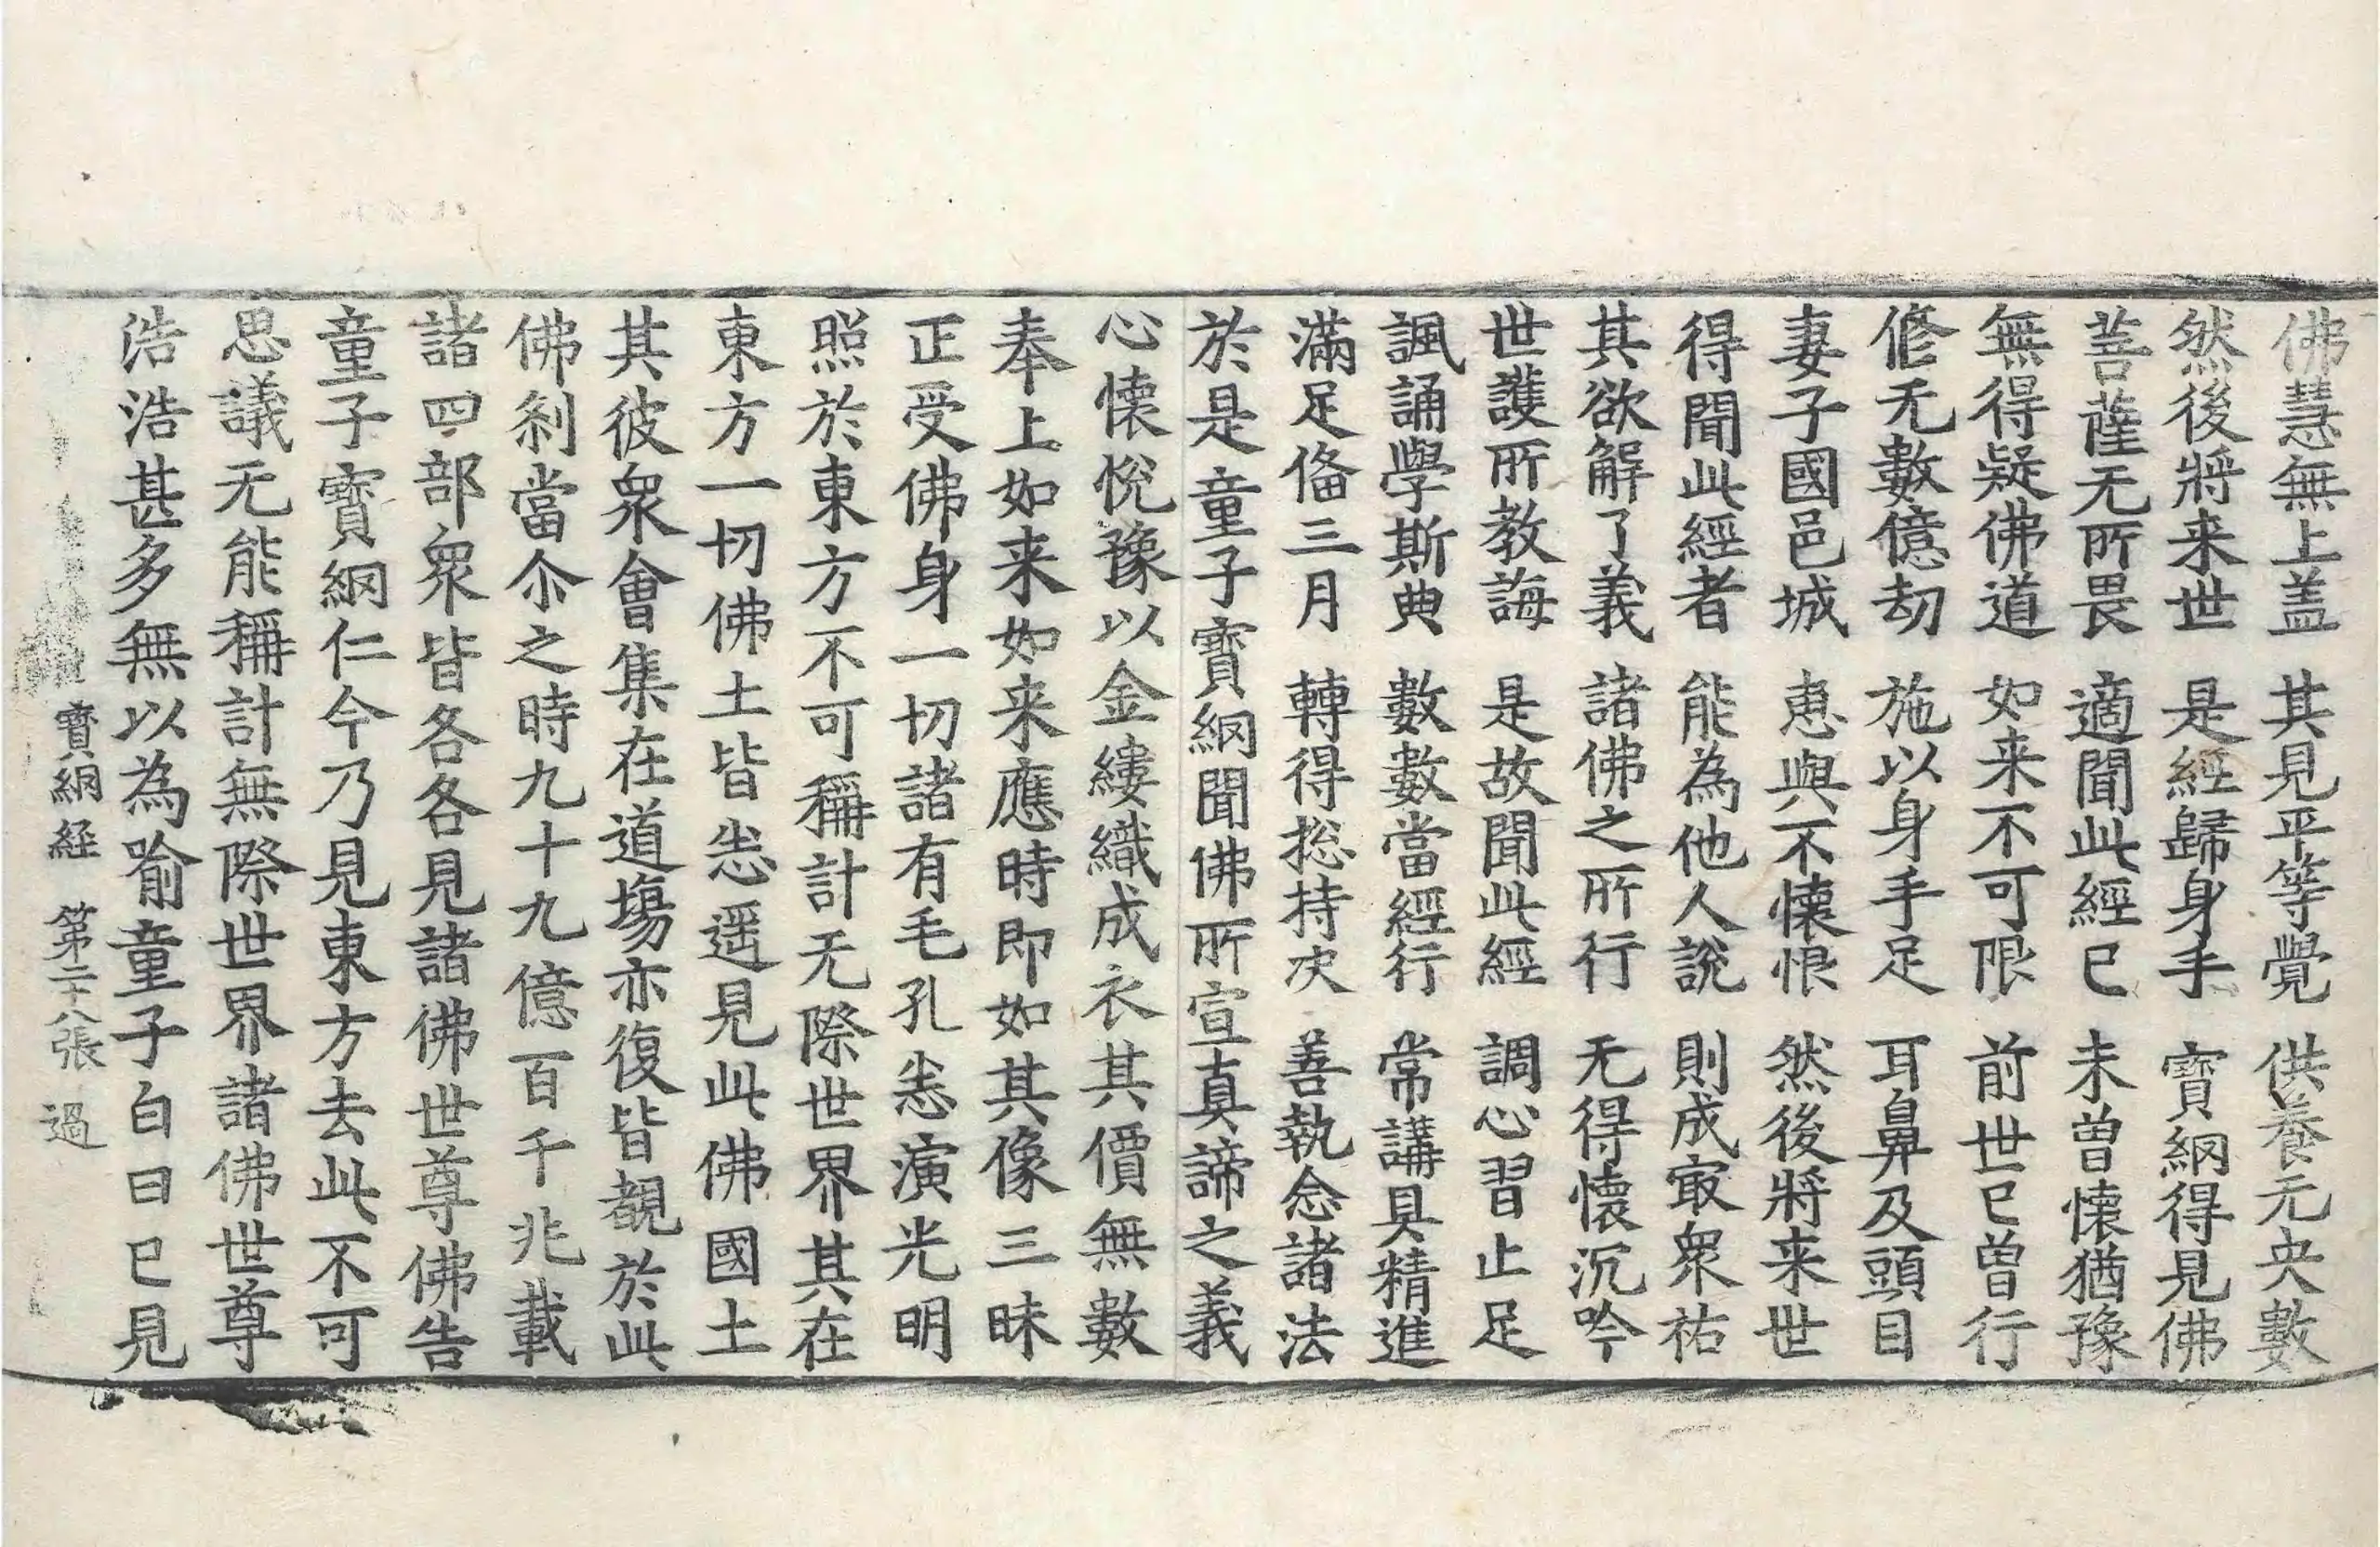 佛慧無上盖　其見平等覺　供養无央數
然後將来世　是經歸身手　寶網得見佛
菩薩无所畏　適聞此經已　未曾懷猶豫
無得疑佛道　如来不可限　前世已曾行
修无數億劫　施以身手足　耳鼻及頭目
妻子國邑城　惠與不懷恨　然後將来世
得聞此經者　能為他人說　則成㝡衆祐
其欲解了義　諸佛之所行　无得懷沉吟
世護所教誨　是故聞此經　調心習止足
諷誦學斯典　數數當經行　常講具精進
滿足俻三月　轉得捴持决　善執念諸法
於是童子寶網聞佛所宣真諦之義
心懷悅豫以金縷織成衣其價無數
奉上如来如来應時即如其像三昧
正受佛身一切諸有毛孔悉演光明
照於東方不可稱計无際世界其在
東方一切佛土皆悉遥見此佛國土
其彼衆會集在道塲亦復皆覩於此
佛刹當尒之時九十九億百千兆載
諸四部衆皆各各見諸佛世尊佛告
童子寶網仁今乃見東方去此不可
思議无能稱計無際世界諸佛世尊
浩浩甚多無以為喻童子白曰已見
寶網経　第二十八張　過